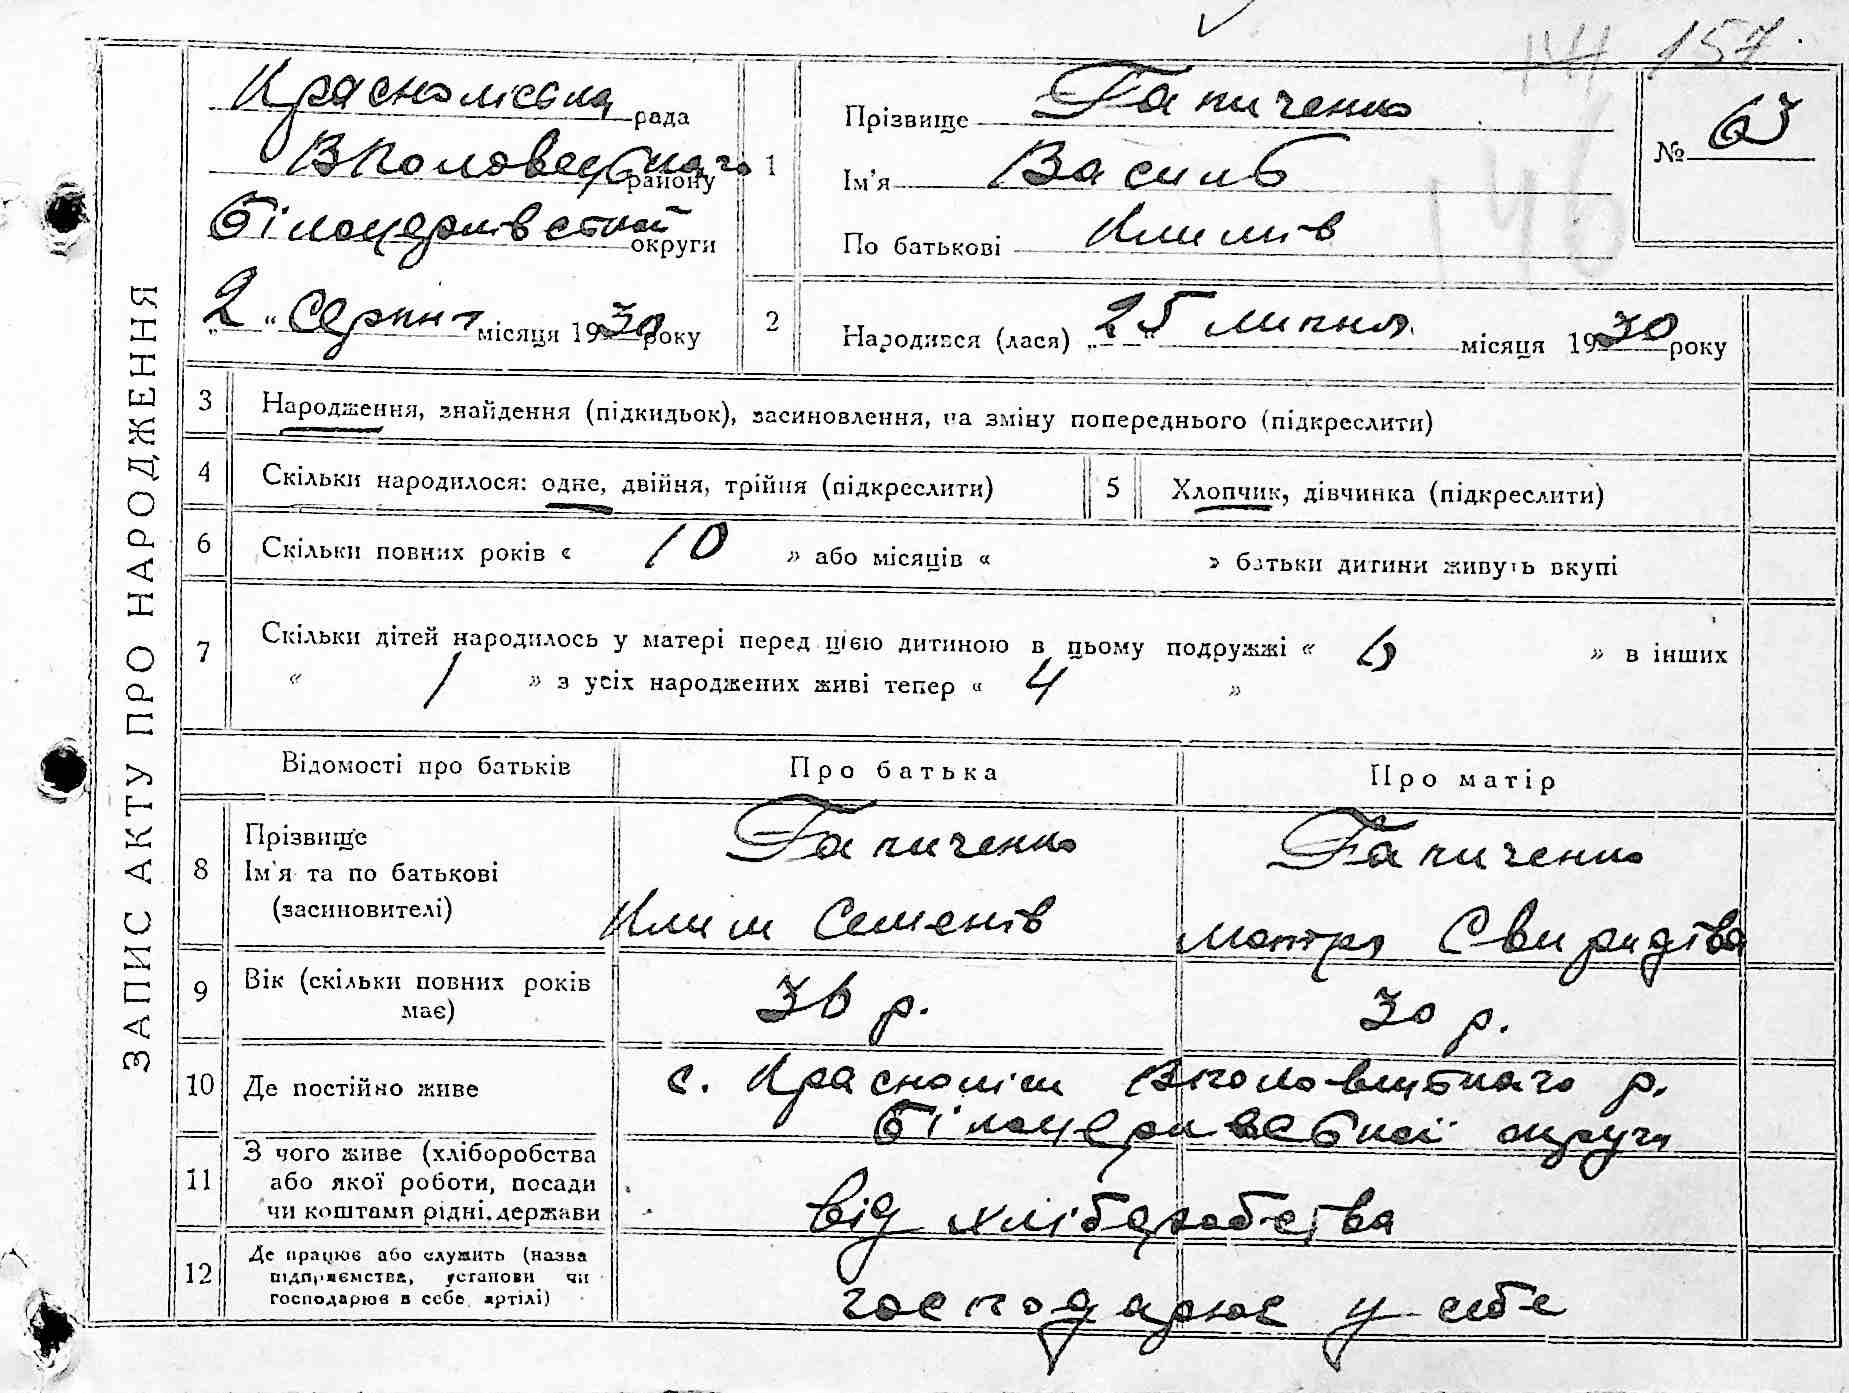 157
ЗАПИС АКТУ ПРО НАРОДЖЕННЯ
Краснолiська рада
Вполовецького району
Білоцерківської округи
„2“ Серпня місяця 1930 року
1
Прізвище Гапиченко
Ім'я Василь
По батькові Климів
№ 63
146
2
Народився (лася) „25“ липня місяця 1930 року
3 Народження, знайдення (підкидьок), засиновлення, на зміну попереднього (підкреслити)
4 Скільки народилося: одне, двійня, трійня (підкреслити)
5 Хлопчик, дівчинка (підкреслити)
6 Скільки повних років « 10 » або місяців « » батьки дитини живуть вкупі
7 Скільки дітей народилось у матері перед цією дитиною в цьому подружжі « » в інших
« 1 » з усіх народжених живі тепер « 4 »
Відомості про батьків Про батька Про матір
8 Прізвище
Ім'я та по батькові
(засиновителі)
Гапиченко
Клим Семенів
Гапиченко
Мотря Свиридіва
9 Вік (скільки повних років
має)
36 р. 30 р.
10 Де постійно живе
с. Красноліси Вполовецького р.
Білоцерківської округи
11 З чого живе (хліборобства
або якої роботи, посади
чи коштами рідні, держави
від хліборобства
12 Де працює або служить (назва
підприємства, установи чи
господарює в себе, артілі)
господарює у себе